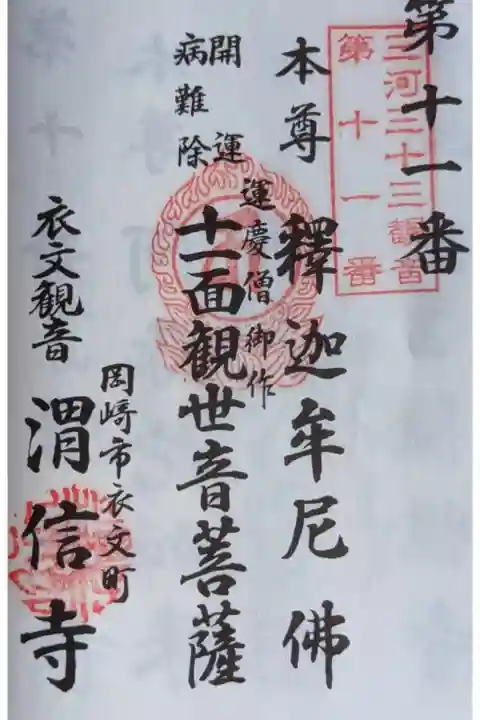 第十一番
三河三十三観音
第十一番
本尊 釋迦牟尼佛
運慶僧御作
開運
病難除
十一面観世音菩薩
衣文観音
岡崎市衣文町
渭信寺